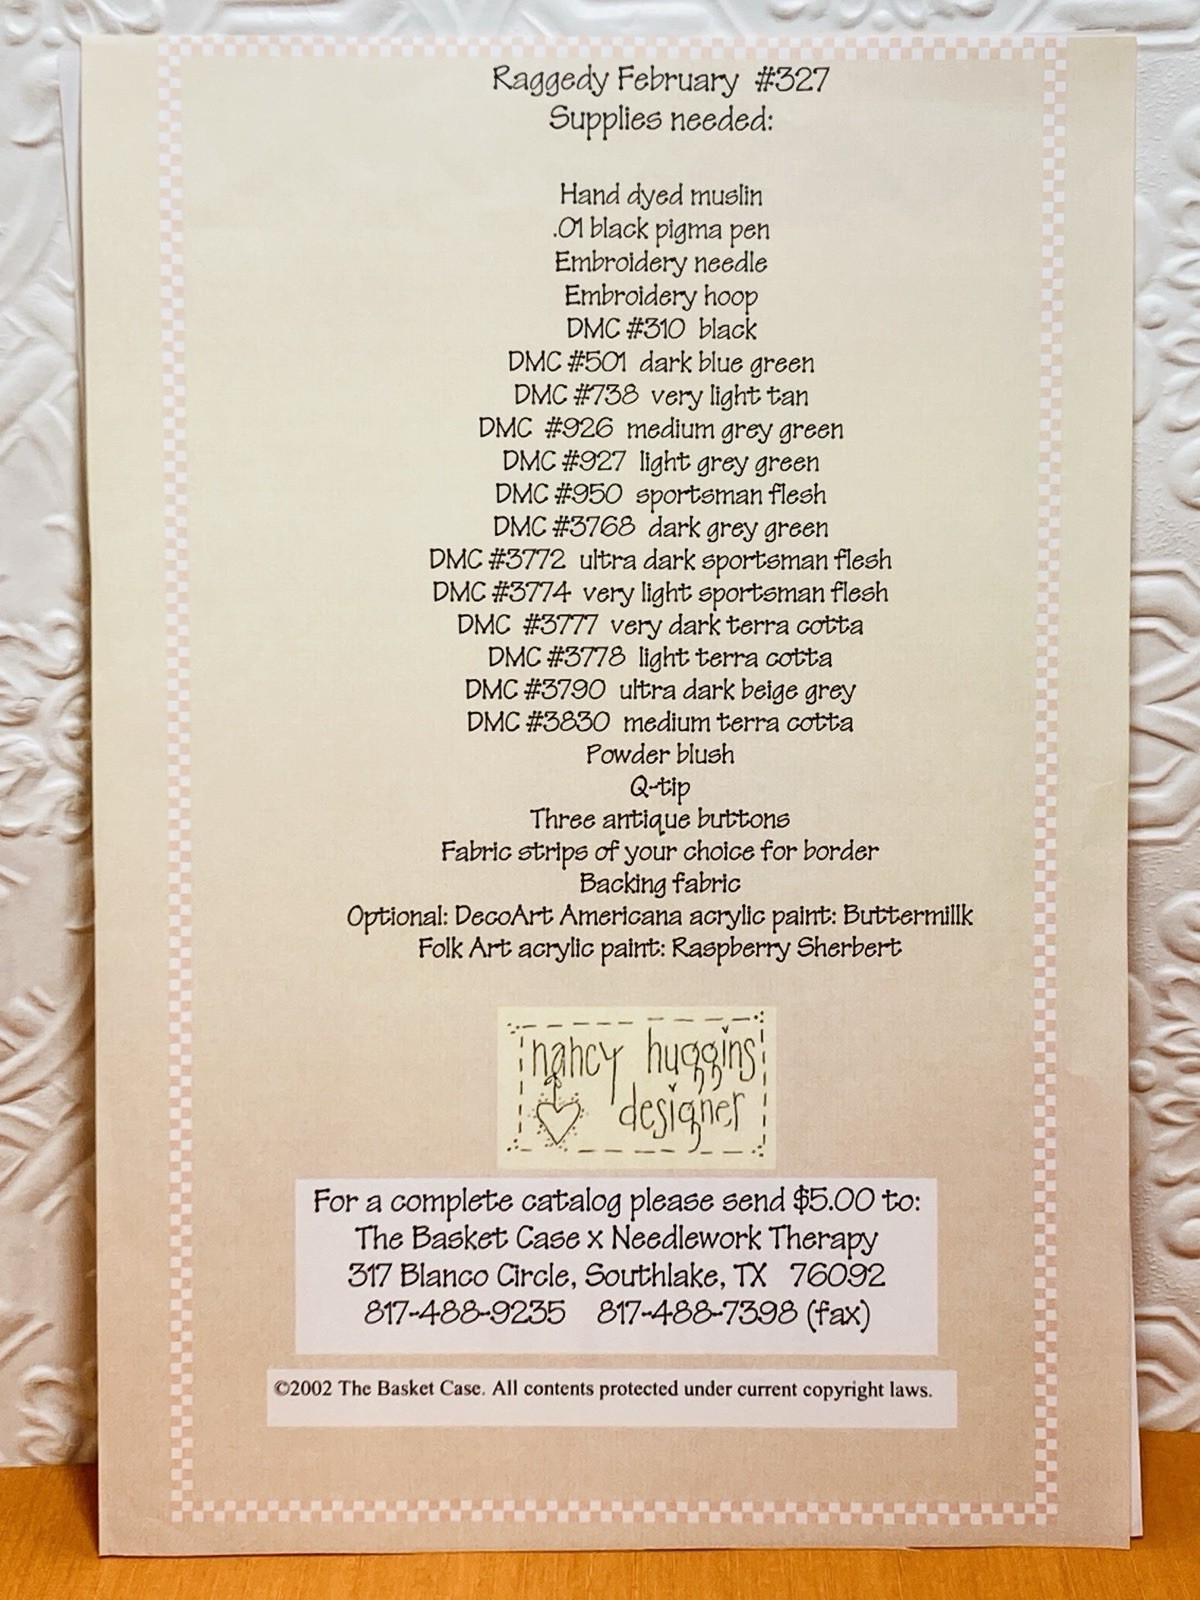 Raggedy February #327
Supplies needed:
Hand dyed muslin
.01 black pigma pen
Embroidery needle
Embroidery hoop
DMC #310 black
DMC #501 dark blue green
DMC #738 very light tan
DMC #926 medium grey green
DMC #927 light grey green
DMC #950 sportsman flesh
DMC #3768 dark grey green
DMC #3772 ultra dark sportsman flesh
DMC #3774 very light sportsman flesh
DMC #3777 very dark terra cotta
DMC #3778 light terra cotta
DMC #3790 ultra dark beige grey
DMC #3830 medium terra cotta
Powder blush
Q-tip
Three antique buttons
Fabric strips of your choice for border
Backing fabric
Optional: DecoArt Americana acrylic paint: Buttermillk
Folk Art acrylic paint: Raspberry Sherbert
nancy huggins
designer
For a complete catalog please send $5.00 to:
The Basket Case x Needlework Therapy
317 Blanco Circle, Southlake, TX 76092
817-488-9235 817-488-7398 (fax)
©2002 The Basket Case. All contents protected under current copyright laws.